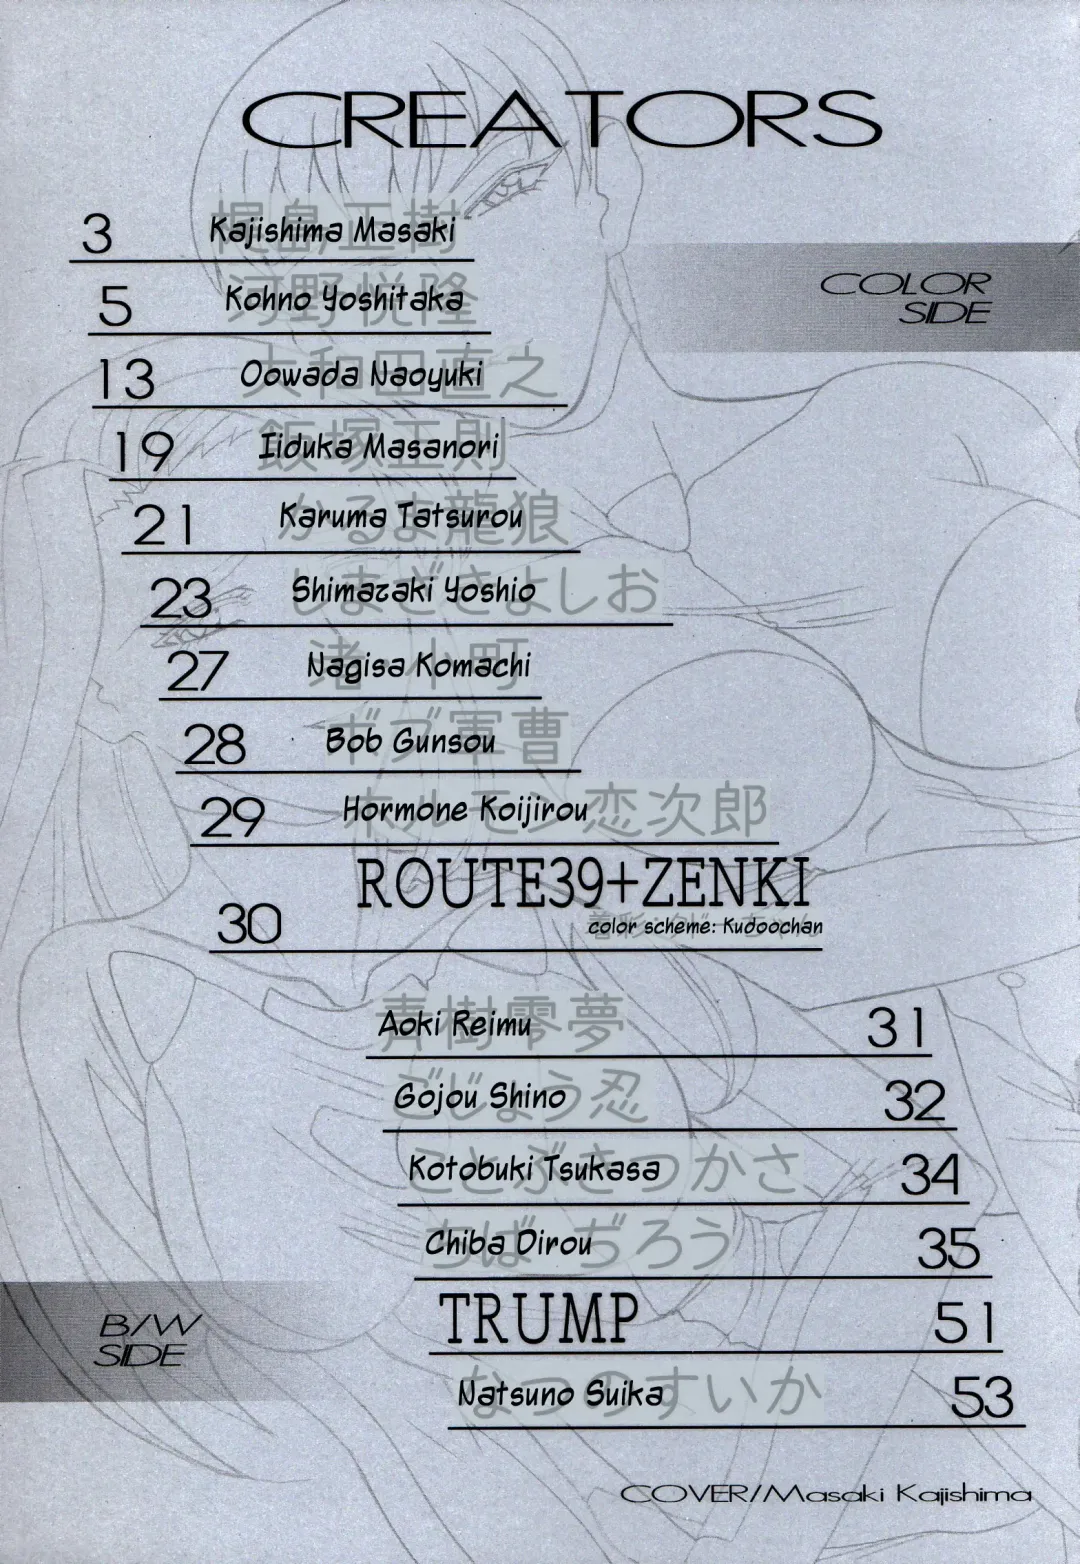 CREATORS
3 Kajishima Masaki
梶島正樹
COLOR
SIDE
5 Kohno Yoshitaka
河野悦隆
13 Oowada Naoyuki
大和田直之
19 Iiduka Masanori
飯塚正則
21 Karuma Tatsurou
かるま龍狼
23 Shimazaki Yoshio
しまざきよしお
27 Nagisa Komachi
渚小町
28 Bob Gunsou
ボブ軍曹
29 Hormone Koijirou
ホルモン恋次郎
30 ROUTE39+ZENKI
color scheme: Kudoochan
Aoki Reimu 31
青樹零夢
Gojou Shino 32
ごじょう忍
Kotobuki Tsukasa 34
ことぶきつかさ
Chiba Dirou 35
ちばぢろう
B/W
SIDE
TRUMP 51
Natsuno Suika 53
なつのすいか
COVER/Masaki Kajishima